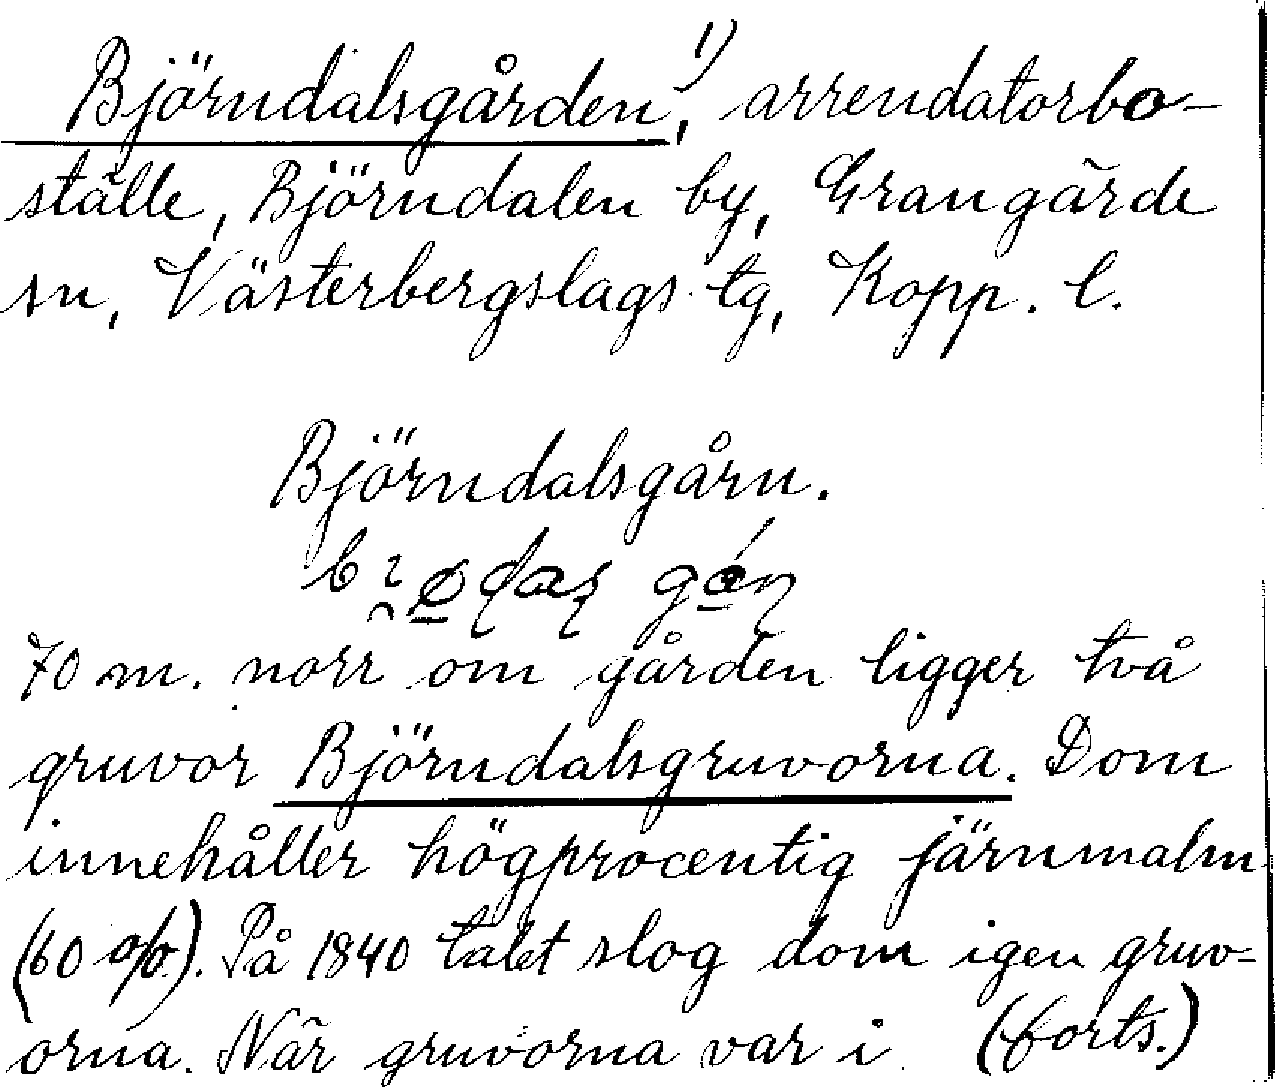 Björndalsgården,¹⁾ arrendatorbo-
ställe, Björndalen by, Grangärde
sn, Västerbergslags tg, Kopp. l.
Björndalsgårn.
70 m. norr om gården ligger två
gruvor Björndalsgruvorna. Dom
innehåller högprocentig järnmalm
(60 o/o.). På 1840 talet slog dom igen gruv-
orna. När gruvorna var i (forts.)